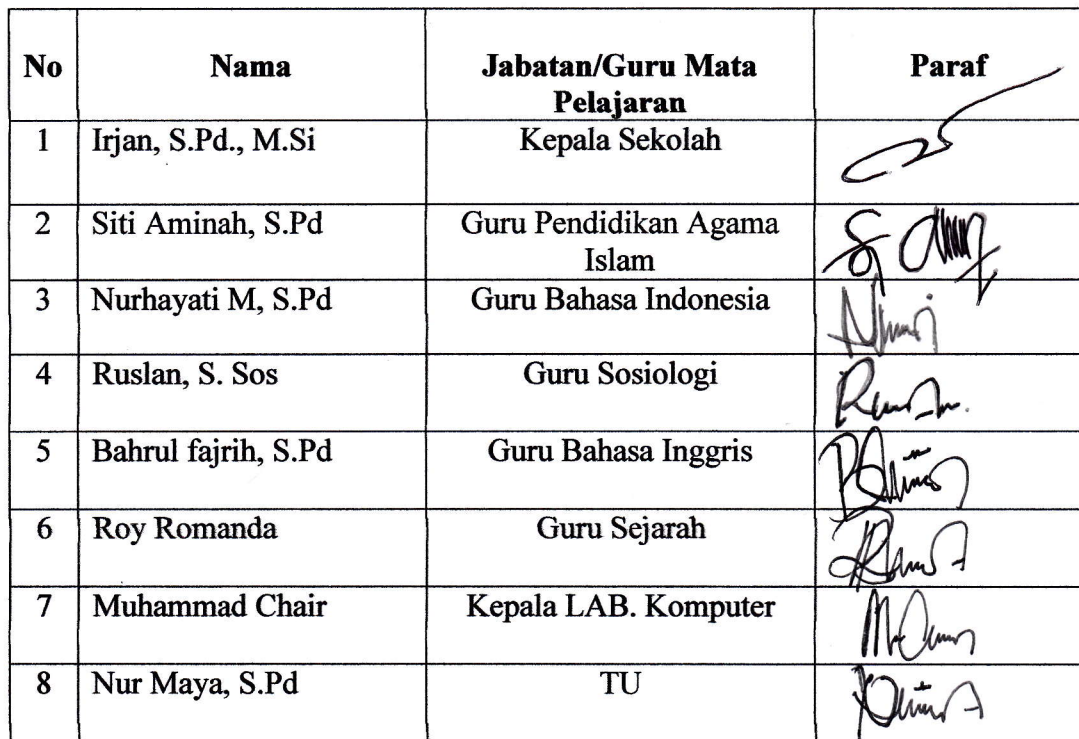 No Nama Jabatan/Guru Mata Pelajaran Paraf
1 Irjan, S.Pd., M.Si Kepala Sekolah
2 Siti Aminah, S.Pd Guru Pendidikan Agama Islam
3 Nurhayati M, S.Pd Guru Bahasa Indonesia
4 Ruslan, S. Sos Guru Sosiologi
5 Bahrul fajrih, S.Pd Guru Bahasa Inggris
6 Roy Romanda Guru Sejarah
7 Muhammad Chair Kepala LAB. Komputer
8 Nur Maya, S.Pd TU